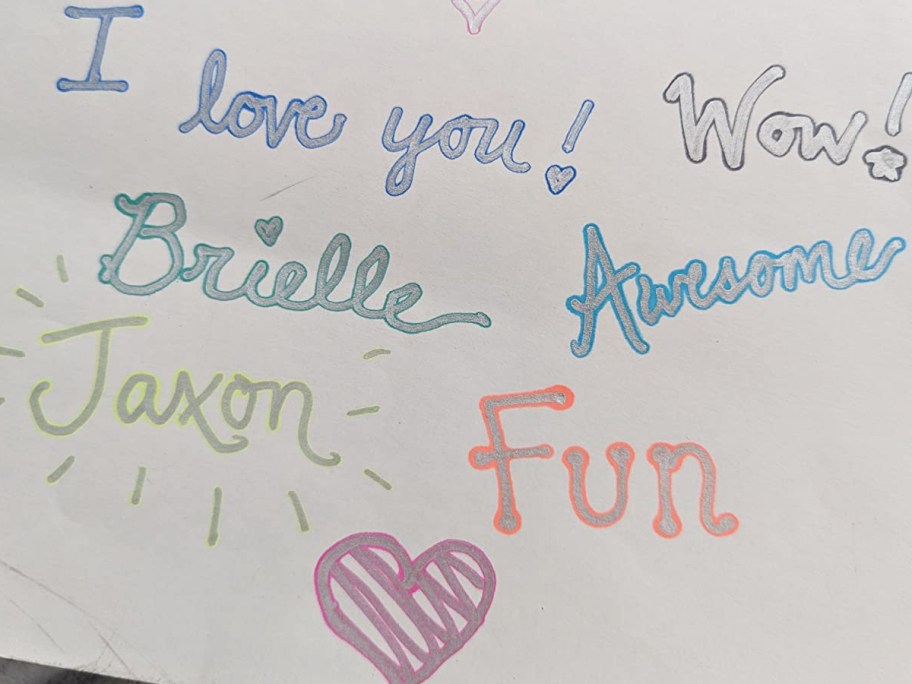 I love you! Wow!
Brielle Awesome
Jaxon Fun